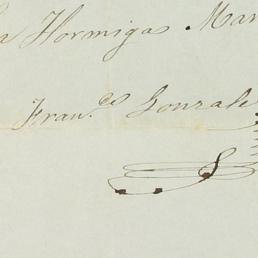 a Hormigas Mar
Fran.co Gonzale